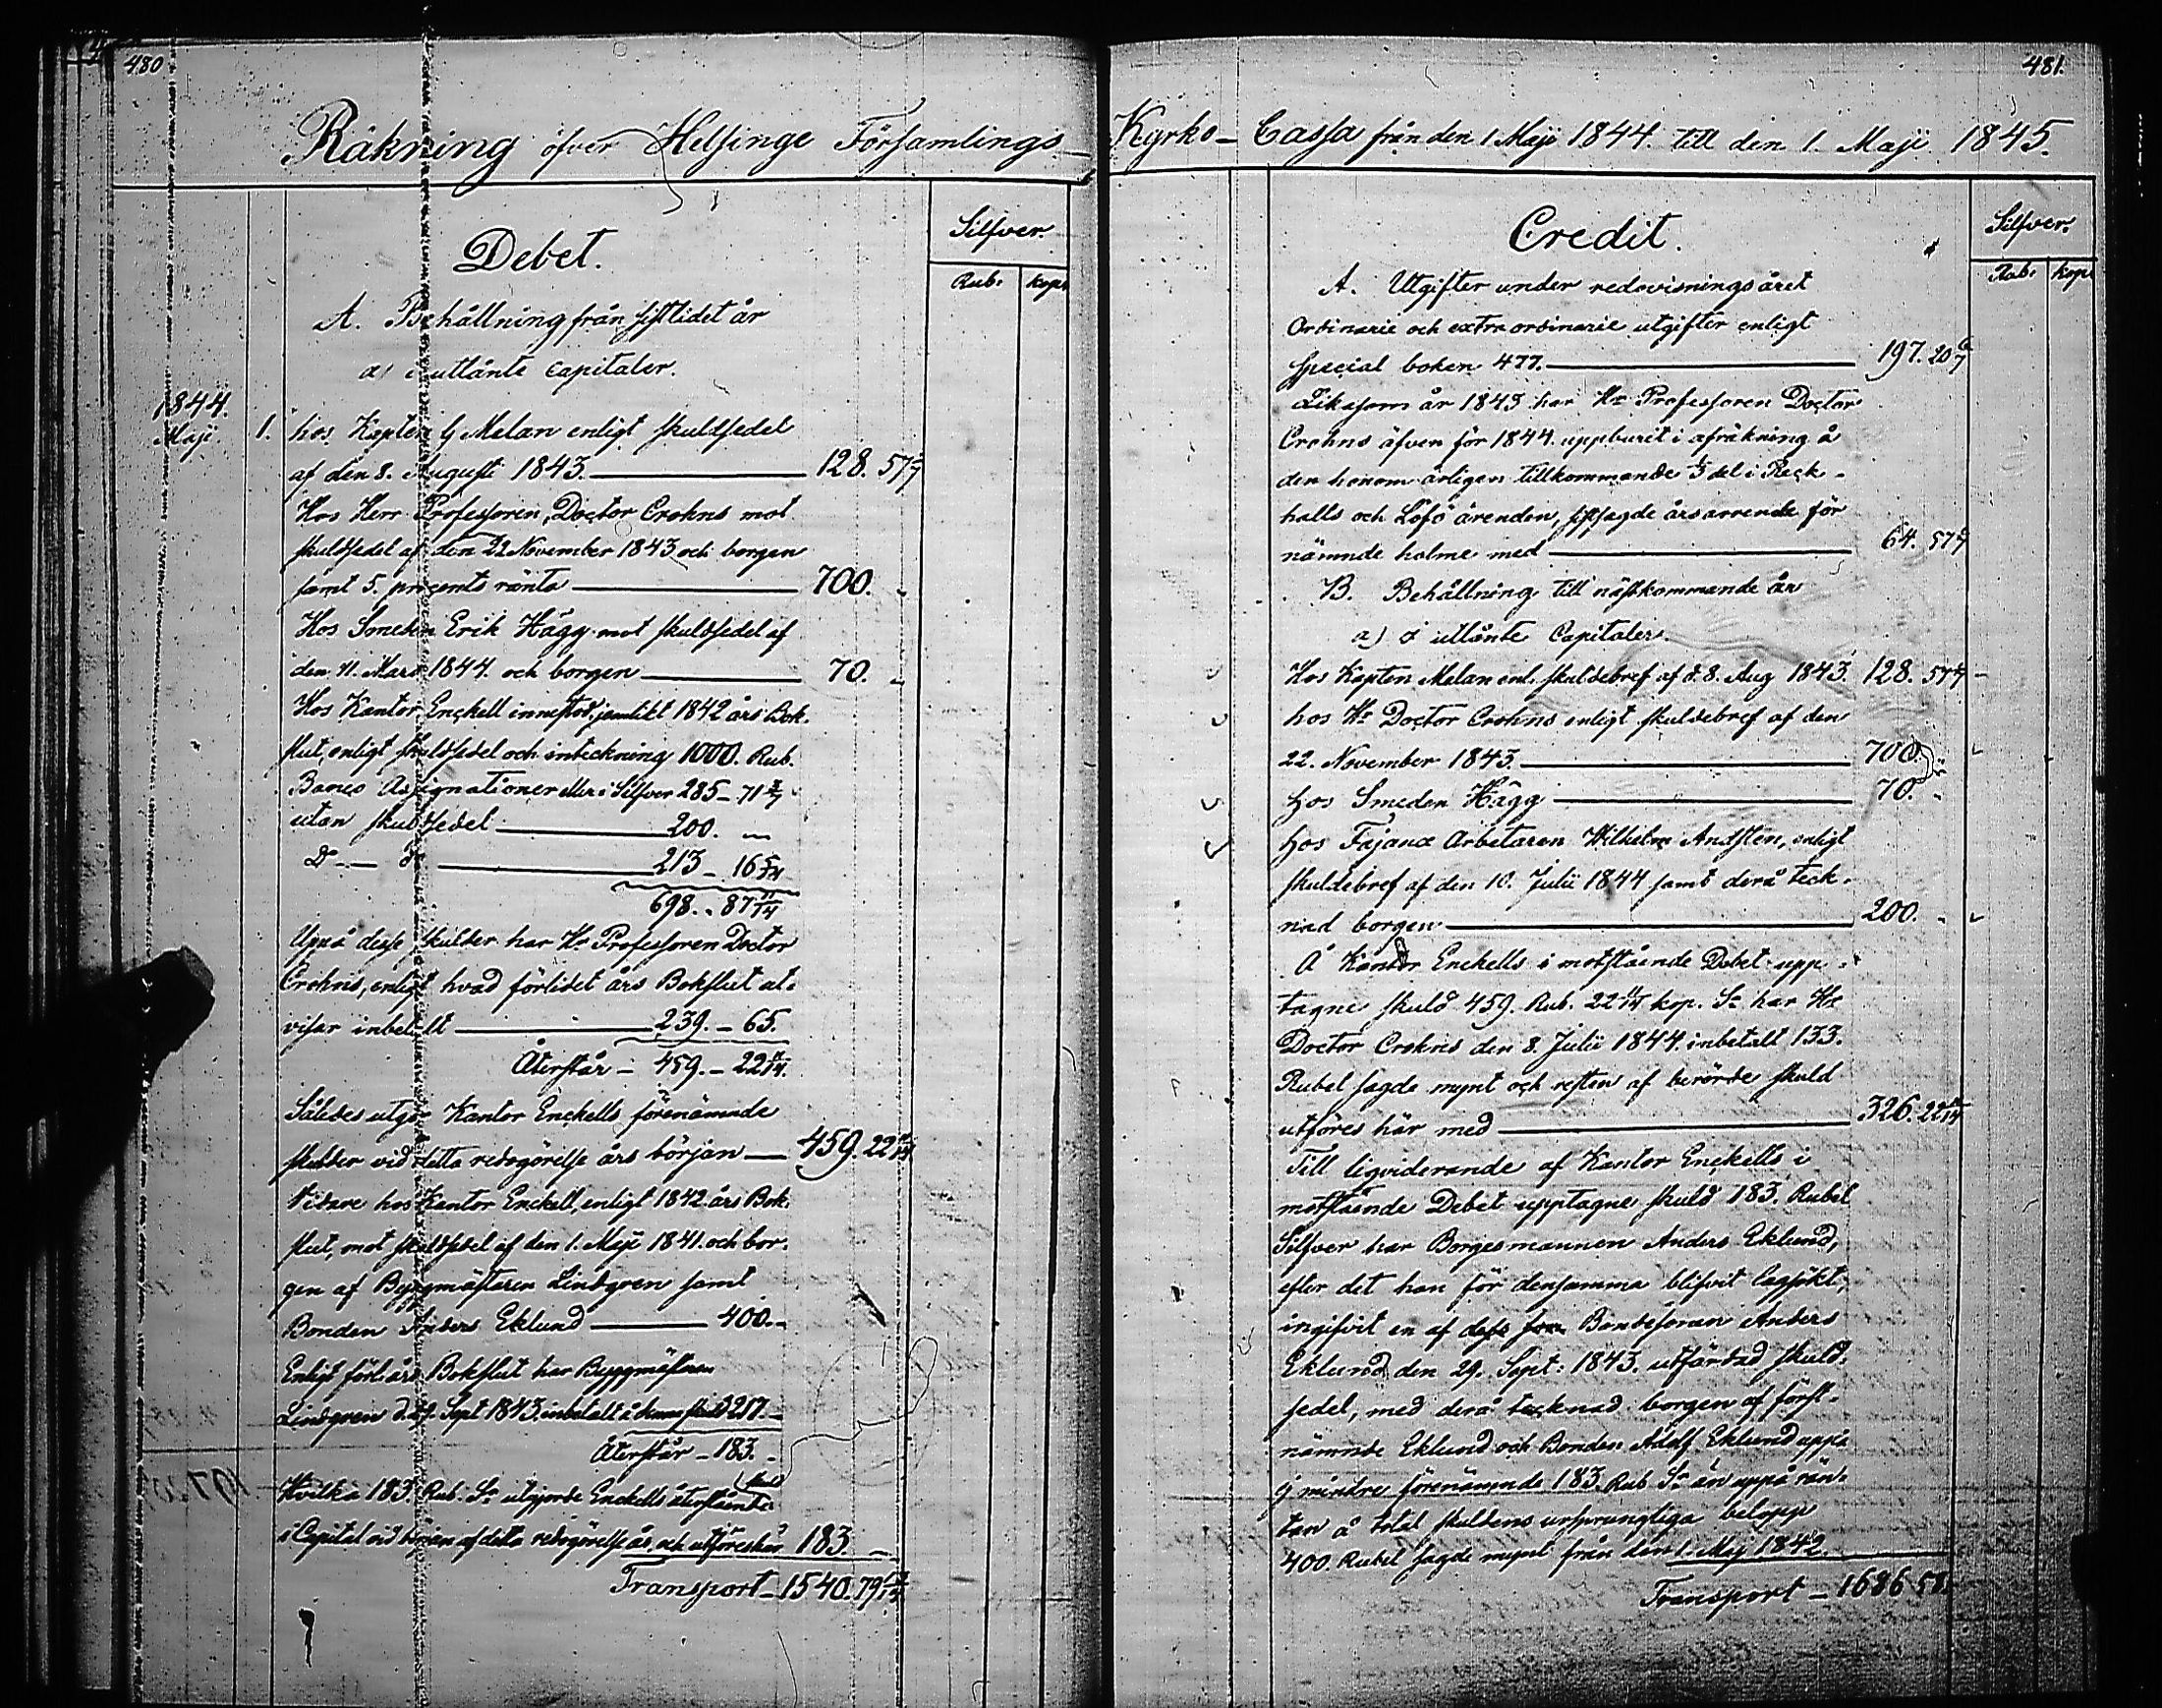 480
Räkning öfver Helsinge Församlings-
Silfver.
Debet.
Rub. kop.
A. Behållning från sistlidet år
a) i utlånte capitaler.
1844.
Maji. 1. hos Kapten G Melan enligt skuldsedel
af den 8. Augusti 1843. 128. 57 1/7
Hos Herr Professoren, Doctor Crohns mot
skuldsedel af den 22 November 1843 och borgen
samt 5. procents ränta 700. "
Hos Smeden Erik Hägg mot skuldsedel af
den 11. Mars 1844. och borgen 70. "
Hos Kantor Enckell innestod, jemlikt 1842 års Bok-
slut, enligt skuldsedel och inteckning 1000. Rub.
Banco Assignationer eller i Silfver 285 - 71 3/7
utan skuldsedel 200. "
Do - do 213 - 16 5/14
698. " 87 11/14
Uppå desse skulder har Hr Professoren Doctor
Crohns, enligt hvad förlidet års Bokslut ut-
visar inbetalt 239. - 65.
Återstår - 459. - 22 11/14.
Således utgör Kantor Enckells förenämnde
skulder vid detta redogörelse års början 459. 22 11/14
Vidare hos Kantor Enckell, enligt 1842 års Bok-
slut, mot skuldsedel af den 1. Maji 1841. och bor-
gen af Byggmästaren Lindgren samt
Bonden Anders Eklund 400. -
Enligt förl. års Bokslut har Byggmästaren
Lindgren d. 29. Sept 1843. inbetalt å denna skuld 217. -
Återstår - 183. -
Hvilka 183. Rub. Sr utgjorde Enckells återstående skuld
i Capital vid början af detta redogörelse år, och utföres här 183. -
Transport - 1540. 79
481.
Kyrko-Cassa från den 1 Maji 1844. till den 1. Maji 1845.
Silfver.
Credit.
Rub. kop.
A. Utgifter under redovisningsåret
Ordinarie och extraordinarie utgifter enligt
special boken 477. 197. 20 6/7
Liksom år 1843 har Hr Professoren Doctor
Crohns äfven för 1844. uppburit i afräkning å
den honom årligen tillkommande 1/3 del i Räck-
halls och Löfö ärenden, sistsagde årsarrende för
nämnde holme med 64. 57 1/7
B. Behållning till nästkommande år
a) i utlånte Capitaler.
Hos Kapten Melan enl. skuldebref af d. 8. Aug 1843. 128. 57 1/7
hos Hr Doctor Crohns enligt skuldebref af den
22. November 1843. 700. "
hos Smeden Hägg 70. "
hos Fajans Arbetaren Wilhelm Andsten, enligt
skuldebref af den 10. Julii 1844 samt derå teck-
nad borgen 200. "
Å Kantor Enckells i motstående Debet upp-
tagne skuld 459. Rub. 22 11/14 kop. Sr har Hr
Doctor Crohns den 8. Julii 1844. inbetalt 133.
Rubel sagde mynt och resten af berörde skuld
utföres här med 326. 22 11/14
Till liqviderande af Kantor Enckells i
motstående Debet upptagne skuld 183. Rubel
Silfver har Borgesmannen Anders Eklund,
efter det han för densamma blifvit lagsökt,
ingifvit en af dess son Bondesonen Anders
Eklund den 29. Sept: 1843. utfärdad skuld-
sedel, med derå tecknad borgen af först-
nämnde Eklund och Bonden Adolf Eklund uppå
ej mindre förenämnde 183. Rub Sr än uppå rän-
tan å total skuldens ursprungliga belopp
400. Rubel sagde mynt från den 1. Maj 1842.
Transport - 1686 58